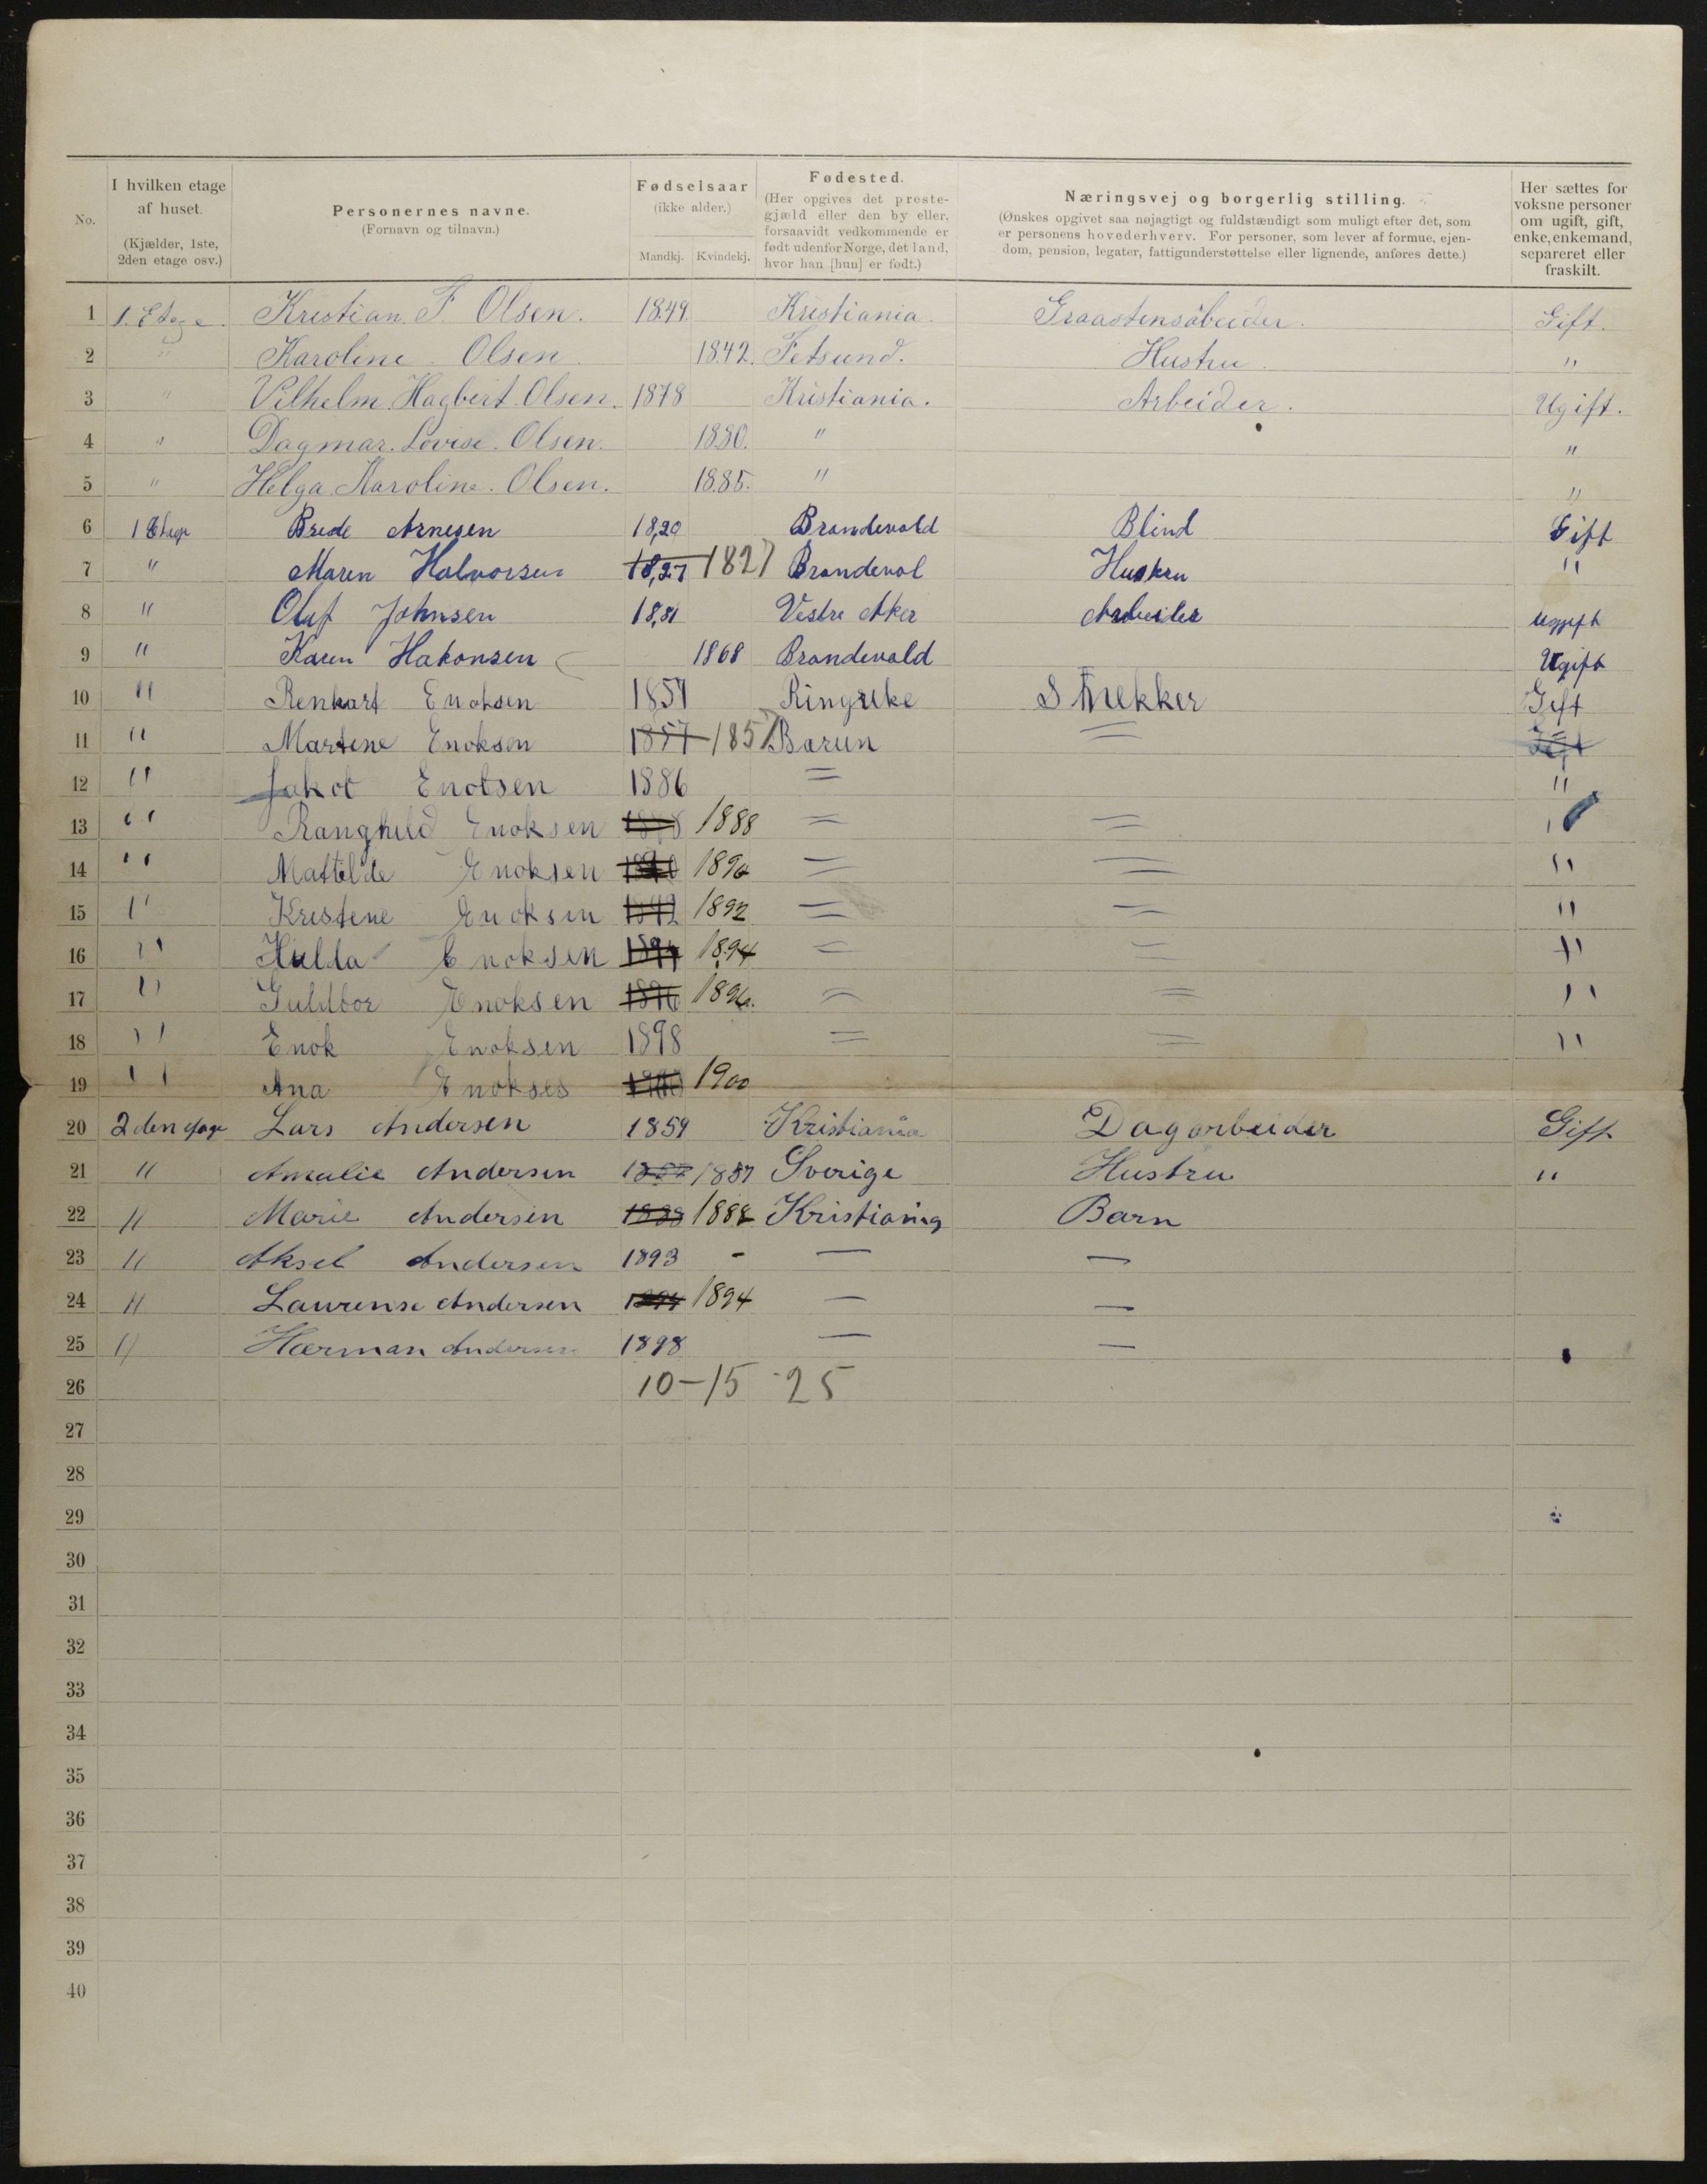 No.
I hvilken etage af huset.
(Kjælder, 1ste, 2den etage osv.)
Personernes navne.
(Fornavn og tilnavn.)
Fødselsaar
(ikke alder.)
Mandkj. Kvindekj.
Fødested.
(Her opgives det prestegjæld eller den by eller, forsaavidt vedkommende er født udenfor Norge, det land, hvor han [hun] er født.)
Næringsvej og borgerlig stilling.
(Ønskes opgivet saa nøjagtigt og fuldstændigt som muligt efter det, som er personens hovederhverv. For personer, som lever af formue, ejendom, pension, legater, fattigunderstøttelse eller lignende, anføres dette.)
Her sættes for voksne personer om ugift, gift, enke, enkemand, separeret eller fraskilt.
1 1. Etage. Kristian F Olsen. 1849. Kristiania. Graastensabeider. Gift.
2 " Karoline Olsen 1842. Fetsund. Hustru. "
3 " Vilhelm. Hagbert. Olsen. 1878 Kristiania. Arbeider. Ugift.
4 " Dagmar. Lovise. Olsen. 1880. " "
5 " Helga Karoline. Olsen. 1885. " "
6 1 Etage Brede Arnesen 18,20 Brandevold Blind Gift
7 " Maren Halvorsen 18,27 1827 Brandevol Huskru "
8 " Oluf Johnsen 18,81 Vestre Aker Arbeider Uggift
9 " Karen Hakonsen 1868 Brandevald Ugift
10 " Renhart Enoksen 1857 Ringrike Snekker Gift
11 " Martene Enoksen 1857 1857 Barun = Gift
12 " Jakob Enoksen 1886 = "
13 " Ranghild Enoksen 1888 1888 = = "
14 " Mattelde Enoksen 1890 1890 = = "
15 " Kristene Enoksen 1892 1892 = = "
16 " Hulda Enoksen 1894 1894 = = "
17 " Guldbor Enoksen 1896 1896. = = "
18 " Enok Enoksen 1898 = = "
19 " Ana Enokses 1900 1900
20 2den Lars Andersen 1859 Kristiania Dagarbeider Gift
21 " Amalie Andersen 1857 1857 Sverige Hustru "
22 " Marie Andersen 1888 1888 Kristiania Barn
23 " Aksel Andersen 1893 - — —
24 " Laurense Andersen 1894 1894 — —
25 " Hærman Andersen 1898 — —
26 10-15 25
27
28
29
30
31
32
33
34
35
36
37
38
39
40